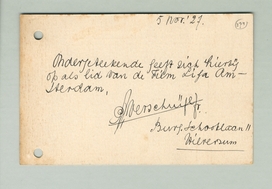 5 Nov. '27.
Ondergeteekende geeft zich hierbij
op als lid van de Film Liga Am-
sterdam,
Burg. Schooklaan 11
Hilversum